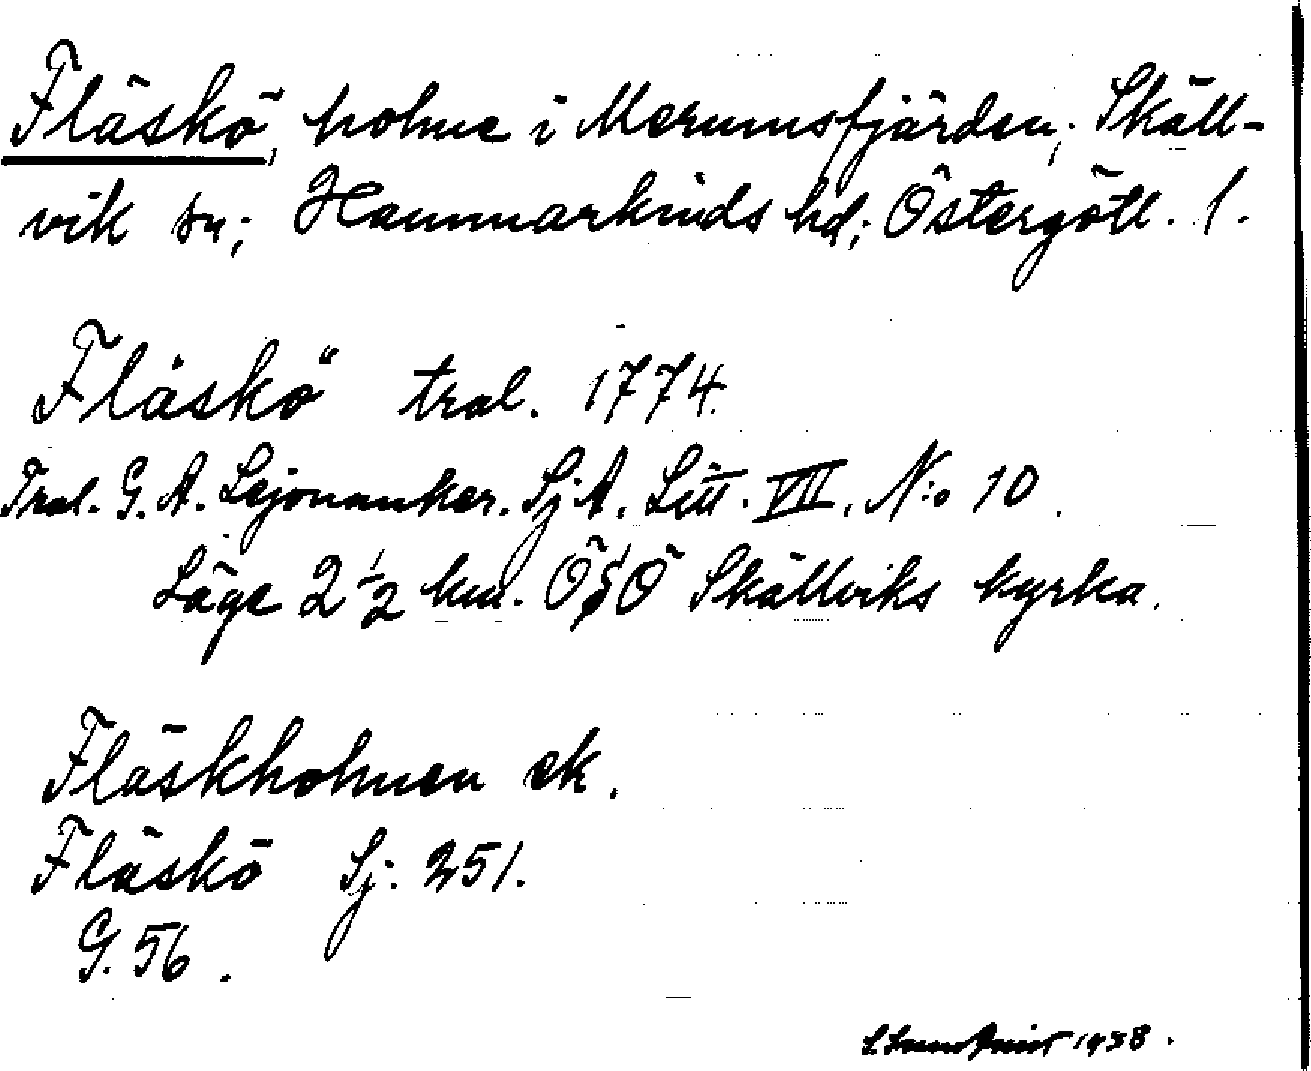 Fläskö, holme i Merumsfjärden; Skäll-
vik sn; Hammarkinds hd; Östergötl. l.
Fläskö tral. 1774.
Tral. G. A. Lejonanker. Sj. A. Litt. VII. N:o 10.
Läge 2 1/2 km. Ö§Ö Skällviks kyrka.
Fläskholmen ek.
Fläskö Sj. 251.
G. 56.
1938.